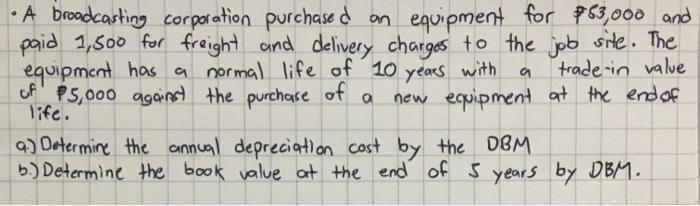 • A broadcasting corporation purchased an equipment for ₱53,000 and
paid 1,500 for freight and delivery charges to the job site. The
equipment has a normal life of 10 years with a trade-in value
of ₱5,000 against the purchase of a new equipment at the end of
life.
a.) Determine the annual depreciation cost by the DBM
b.) Determine the book value at the end of 5 years by DBM.